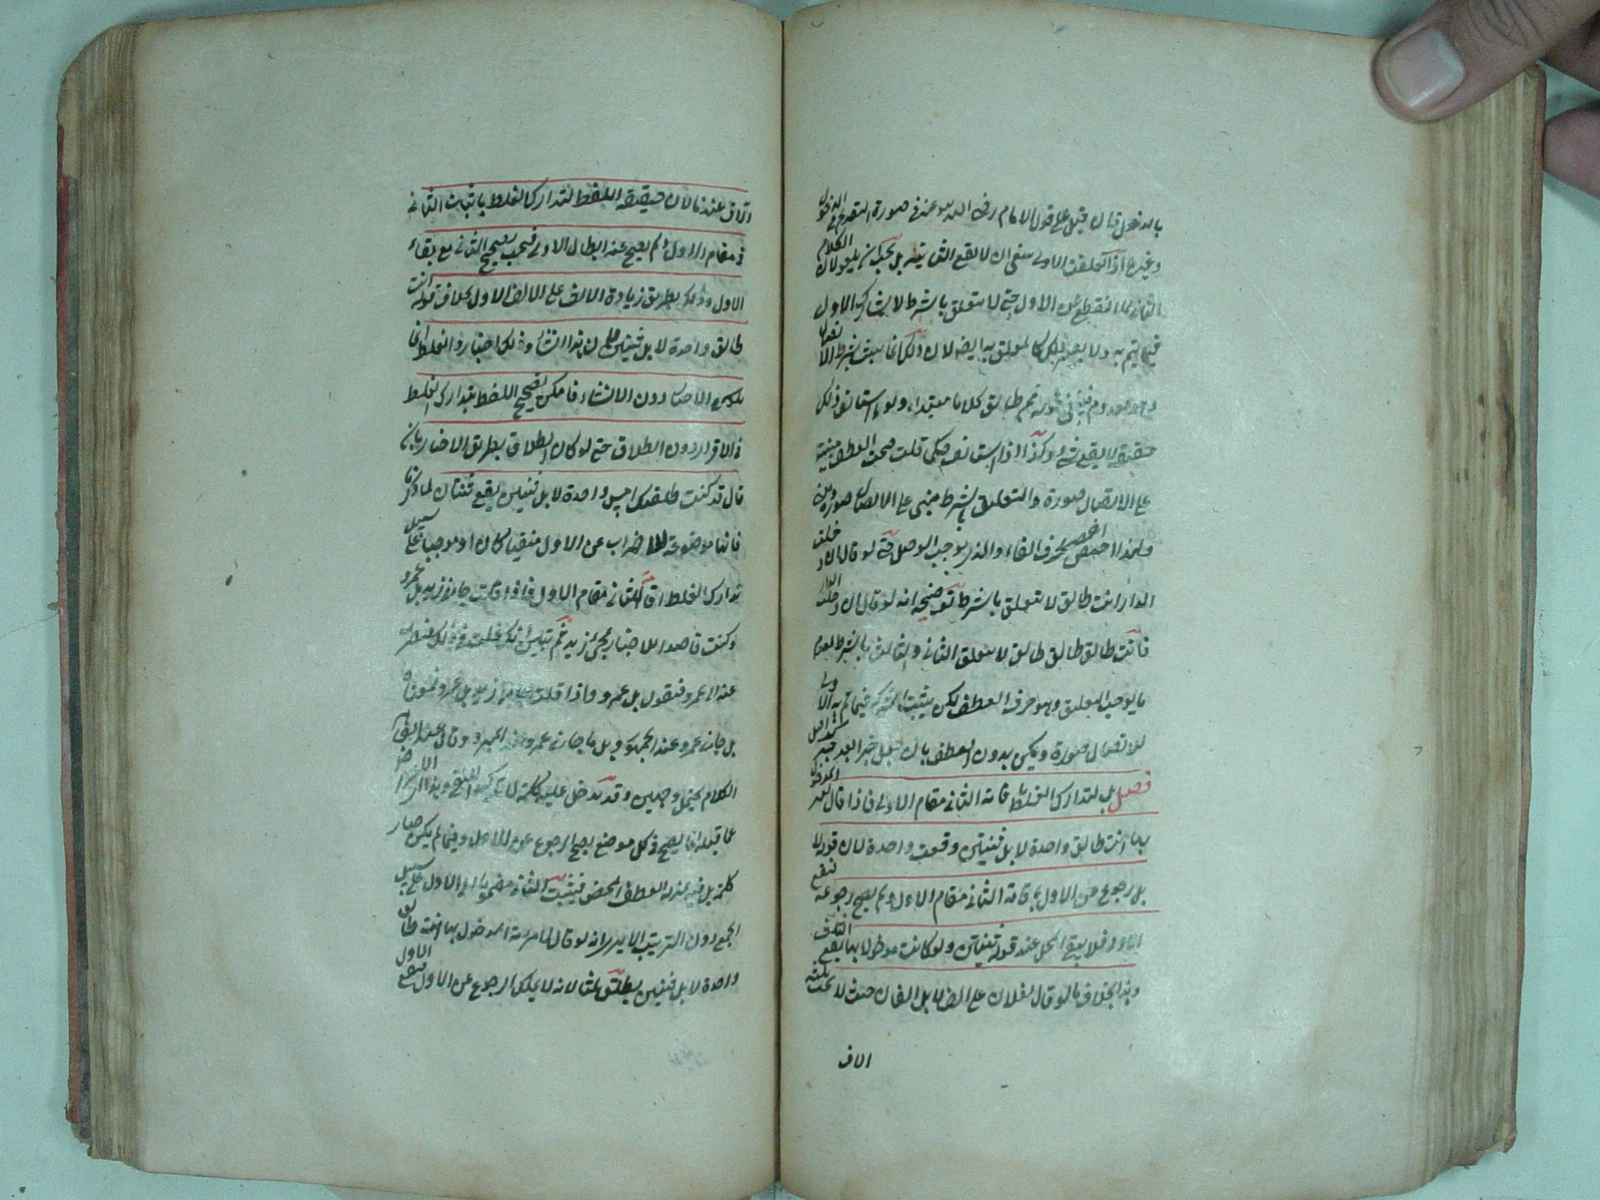 بالدخول قال قيل على قول الامام رضى الله عنه في صورة التقديم الدخول
وغيره اذا تعلقت الاولى ينبغي ان لا يقع الثانية بل يجب ان يلغو لان الكلام
الثاني لما انقطع عن الاول حتى لا يتعلق بالشرط لا يشارك الاول
فيما يتم به
ثم طالق كلاما مبتداء ولو استانف ذلك
حقيقة لا يقع شئ وكذا اذا استانف حكما قلت صحة العطف مبنية
على الاتصال صورة والتعلق بالشرط مبنى على الاتصال صورة
ولهذا اختص بحرف الفاء الموجب الوصل حتى لو قال ان دخلت
الدار انت طالق لا يتعلق بالشرط توضيحه انه لو قال ان دخلت الدار
فانت طالق طالق طالق لا يتعلق الثاني والثالث بالشرط لعدم
ما يوجب التعليق وهو حرف العطف لكن يثبت الشركة فيما تم به الاولى
للاتصال صورة بدون العطف بان جعل خبرا بعد خبر
فصل بل لتدارك الغلط باقامة الثاني مقام الاول فاذا قال لغير المدخول
بها انت طالق واحدة لا بل ثنتين وقعت واحدة لان قوله لا
بل رجوع عن الاول باقامة الثاني مقام الاول ولم يصح رجوعه فيقع
الاول فلا يبقى المحل عند قوله ثنتين ولو كانت مدخولا بها يقع الثلاث
وهذا بخلاف ما لو قال لفلان على الف لا بل الفان حيث لا يجب ثلثة
الاف
الاف عندنا لان حقيقة اللفظ لتدارك الغلط باثبات الثاني
في مقام الاول ولم يصح عنه ابطال الاول فيجب تصحيح الثاني مع بقاء
الاول وذلك بطريق زيادة الالف على الالف الاول بخلاف قوله انت
طالق واحدة لا بل ثنتين لان هذا انشاء وذلك اخبار والغلط انما
يكون في الاخبار دون الانشاء فامكن تصحيح اللفظ بتدارك الغلط
في الاقرار دون الطلاق حتى لو كان الطلاق بطريق الاخبار بان
قال قد كنت طلقتك امس واحدة لا بل ثنتين يقع ثنتان لما ذكرنا
فانها موضوعة للاضراب عن الاول منفيا كان او موجبا على سبيل
تدارك الغلط اقامة الثاني مقام الاول فاذا قلت جاءني زيد بل عمرو
وكنت قاصدا للاخبار بمجئ زيد ثم تبين انك غلطت في ذلك
عنه الى عمرو فتقول بل عمرو واذا قلت ما جاءني زيد بل عمرو
بل جاءني عمرو عند الجمهور وبل ما جاءني عمرو عند المبرد وقال عبد القاهر
الكلام يحتمل وجهين وقد تدخل عليه كلمة لا تاكيدا للنفي
عما قبله انما يصح في كل موضع يصح الرجوع عن الاول وفيما لم يكن صار
كلمة بل فيه بمنزلة العطف المحض فيثبت الثاني مضموما الى الاول على سبيل
الجمع دون الترتيب الا يرى انه لو قال لامراته المدخول بها انت طالق
واحدة لا بل ثنتين يطلق ثلثا لانه لا يملك الرجوع عن الاول فيقع الاول